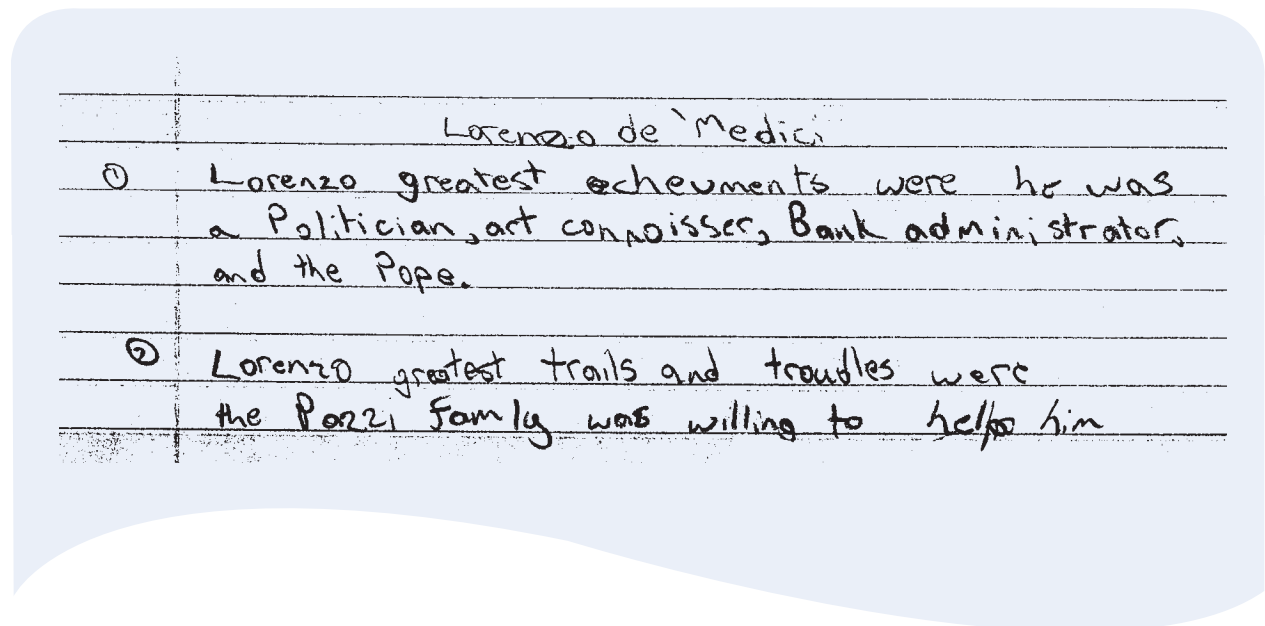 Lorenzo de 'Medici
① Lorenzo greatest echeuments were he was
a Politician, art connoisser, Bank administrator,
and the Pope.
② Lorenzo greatest trails and troudles were
the Pazzi Famly was willing to help him